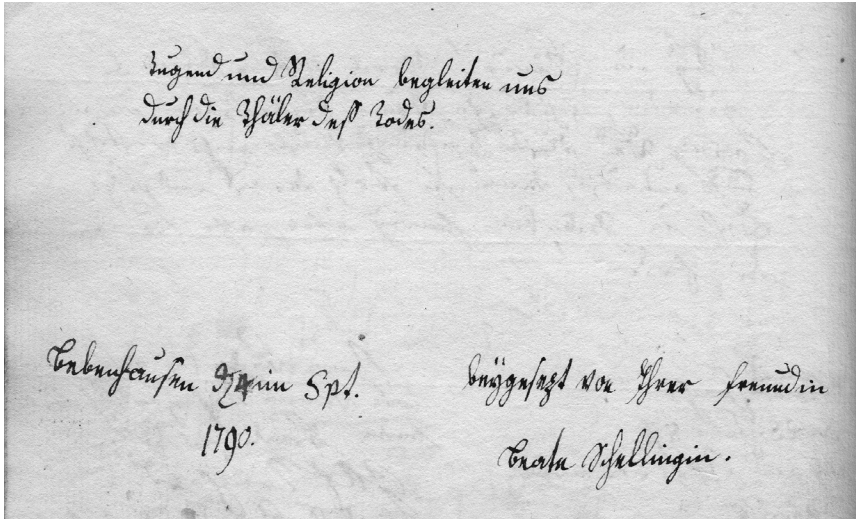 Tugend und Religion begleiten uns
durch die Thäler deß Todes.
Bebenhausen d 4 im Spt.
1790.
beÿgesezt von Ihrer freundin
Beate Schellingin.